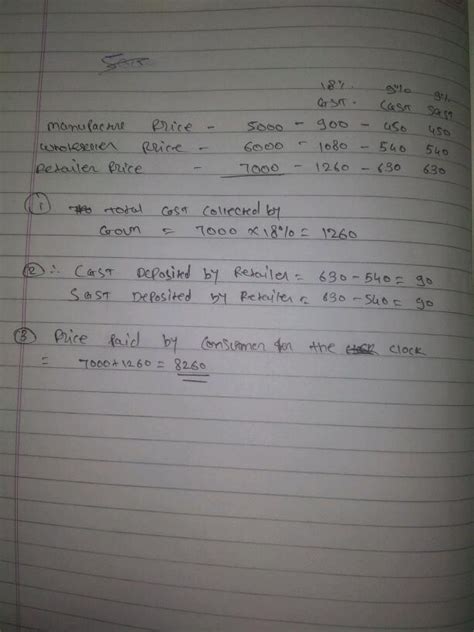 18% 9% 9%
GST. CGST SGST
manufacture Price - 5000 - 900 - 450 450
wholeseller Price - 6000 - 1080 - 540 540
Retailer Price - 7000 - 1260 - 630 630
① total GST Collected by
Govn = 7000 x 18% = 1260
② ∴ CGST Deposited by Retailer = 630 - 540 = 90
SGST Deposited by Retailer = 630 - 540 = 90
③ Price Paid by Consumer for the clock
= 7000+1260 = 8260